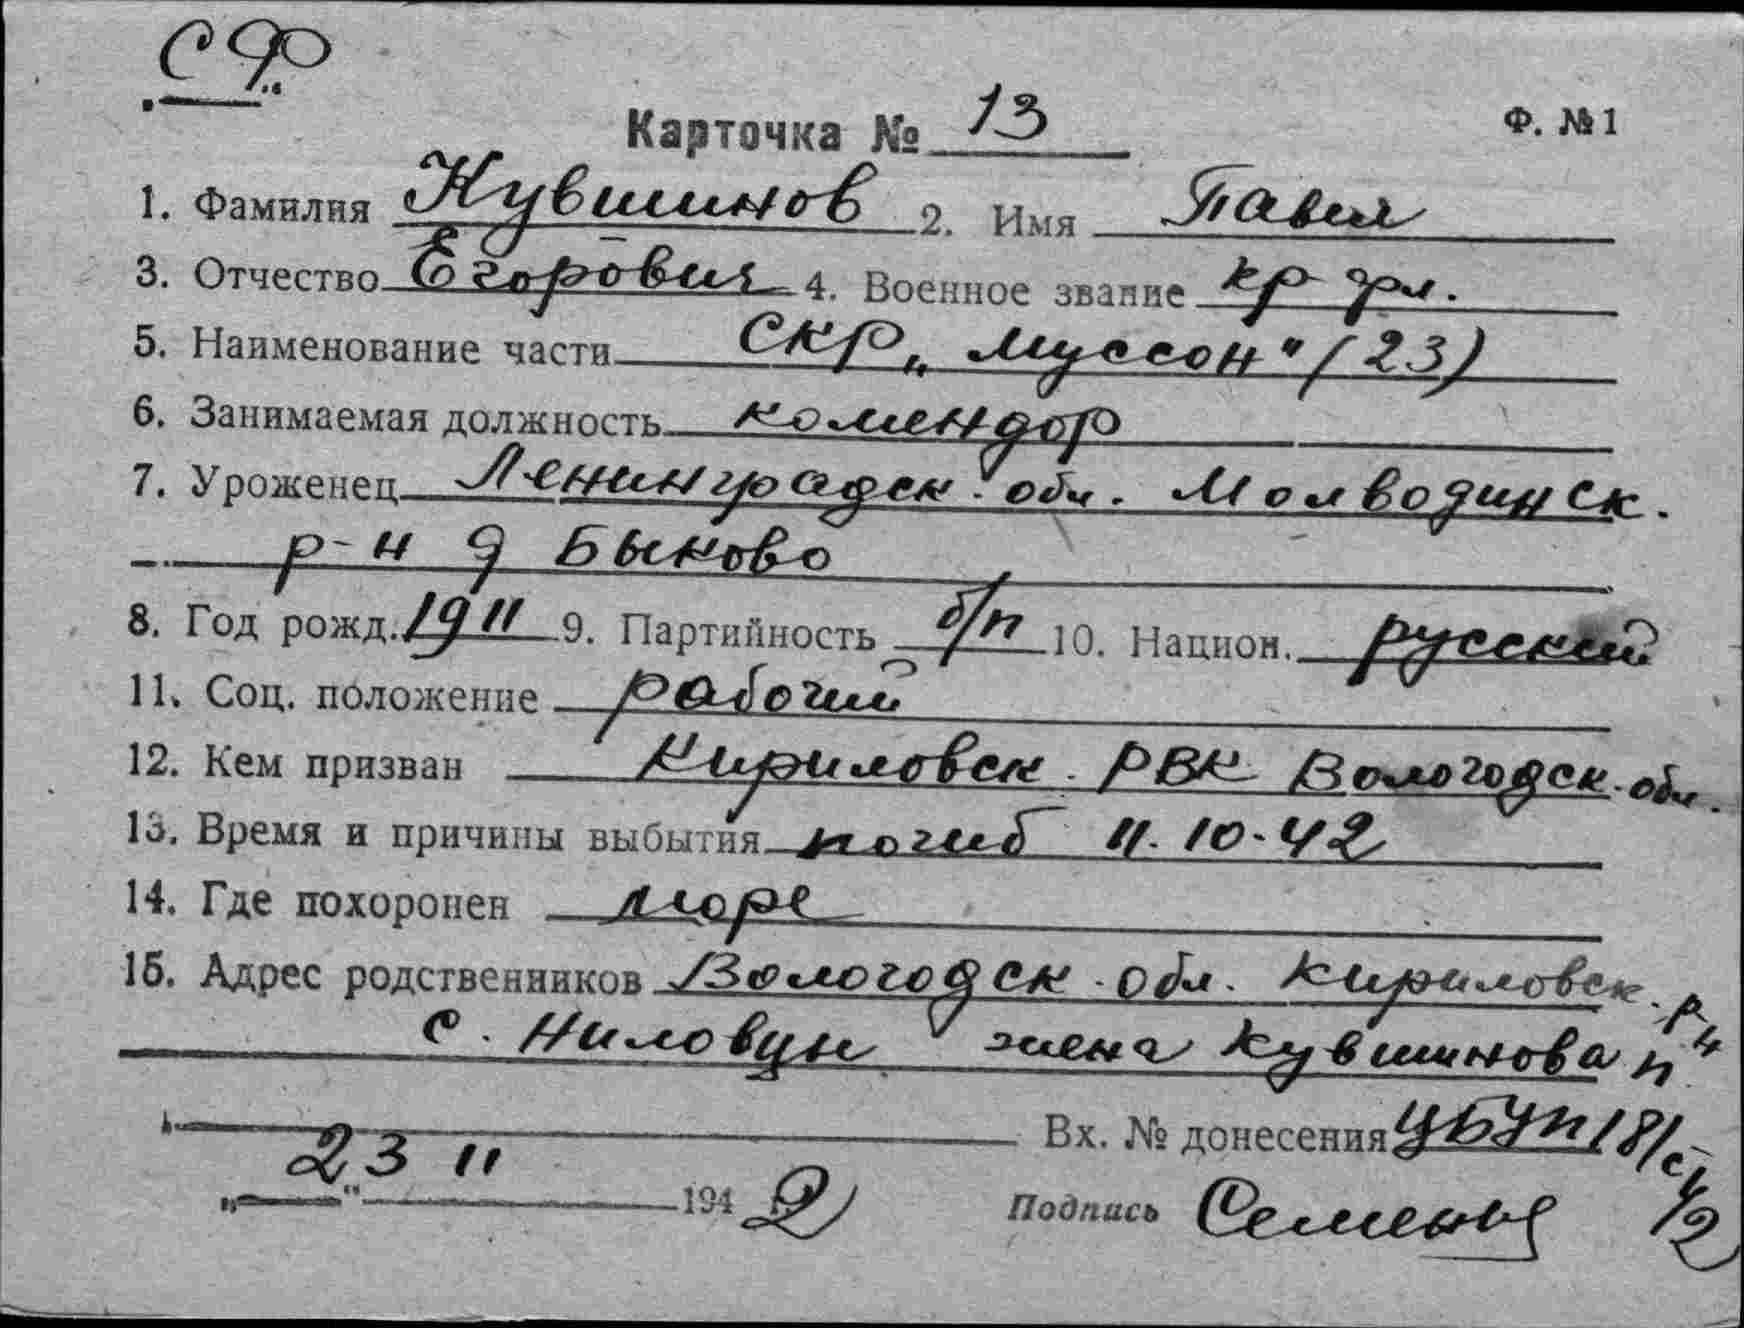 СФ
Карточка № 13 Ф. № 1
1. Фамилия Кувшинов 2. Имя Павел
3. Отчество Егорович 4. Военное звание кр-фл.
5. Наименование части СКР „Муссон" (23)
6. Занимаемая должность комендор
7. Уроженец Ленинградск. обл. Молводинск.
р-н д Быково
8. Год рожд. 1911 9. Партийность б/п 10. Национ. русский
11. Соц. положение рабочий
12. Кем призван Кириловск. РВК Вологодск. обл.
13. Время и причины выбытия погиб 11.10-42
14. Где похоронен море
15. Адрес родственников Вологодск. обл. Кириловск. р-н
с. Ниловцы жена Кувшинова П
Вх. № донесения ЦБУП 18/с
23 11 1942 Подпись